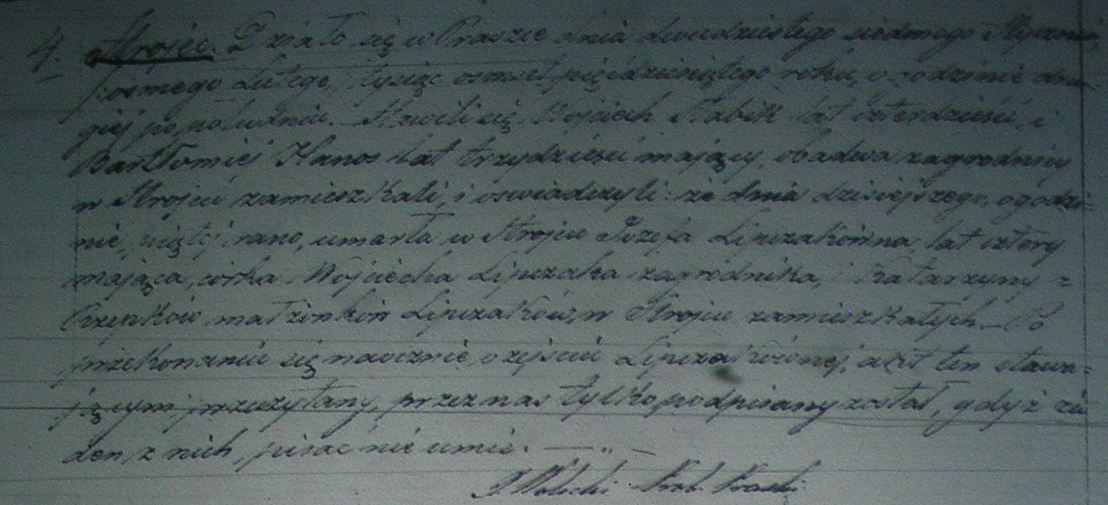 4. Strojec. Działo się w Praszce dnia dwudziestego siódmego Stycznia,
ósmego Lutego, tysiąc osiemset pięćdziesiątego roku, o godzinie dru-
giej po południu. Stawili się, Wojciech Nabik lat czterdzieści, i
Bartłomiej Hanos lat trzydzieści mający, obadwa zagrodnicy
w Strojcu zamieszkali, i oświadczyli: że dnia dzisiejszego, o godzi-
nie, piątej rano, umarła w Strojcu Józefa Lipczakówna, lat cztery
mająca, córka Wojciecha Lipczaka zagrodnika, i Katarzyny z
małżonków Lipczaków, w Strojcu zamieszkałych. Po
przekonaniu się naocznie, o zejściu Lipczakównej, akt ten stawa-
jącym przeczytany, przez nas tylko podpisany został, gdyż ża
den z nich, pisać nie umie.